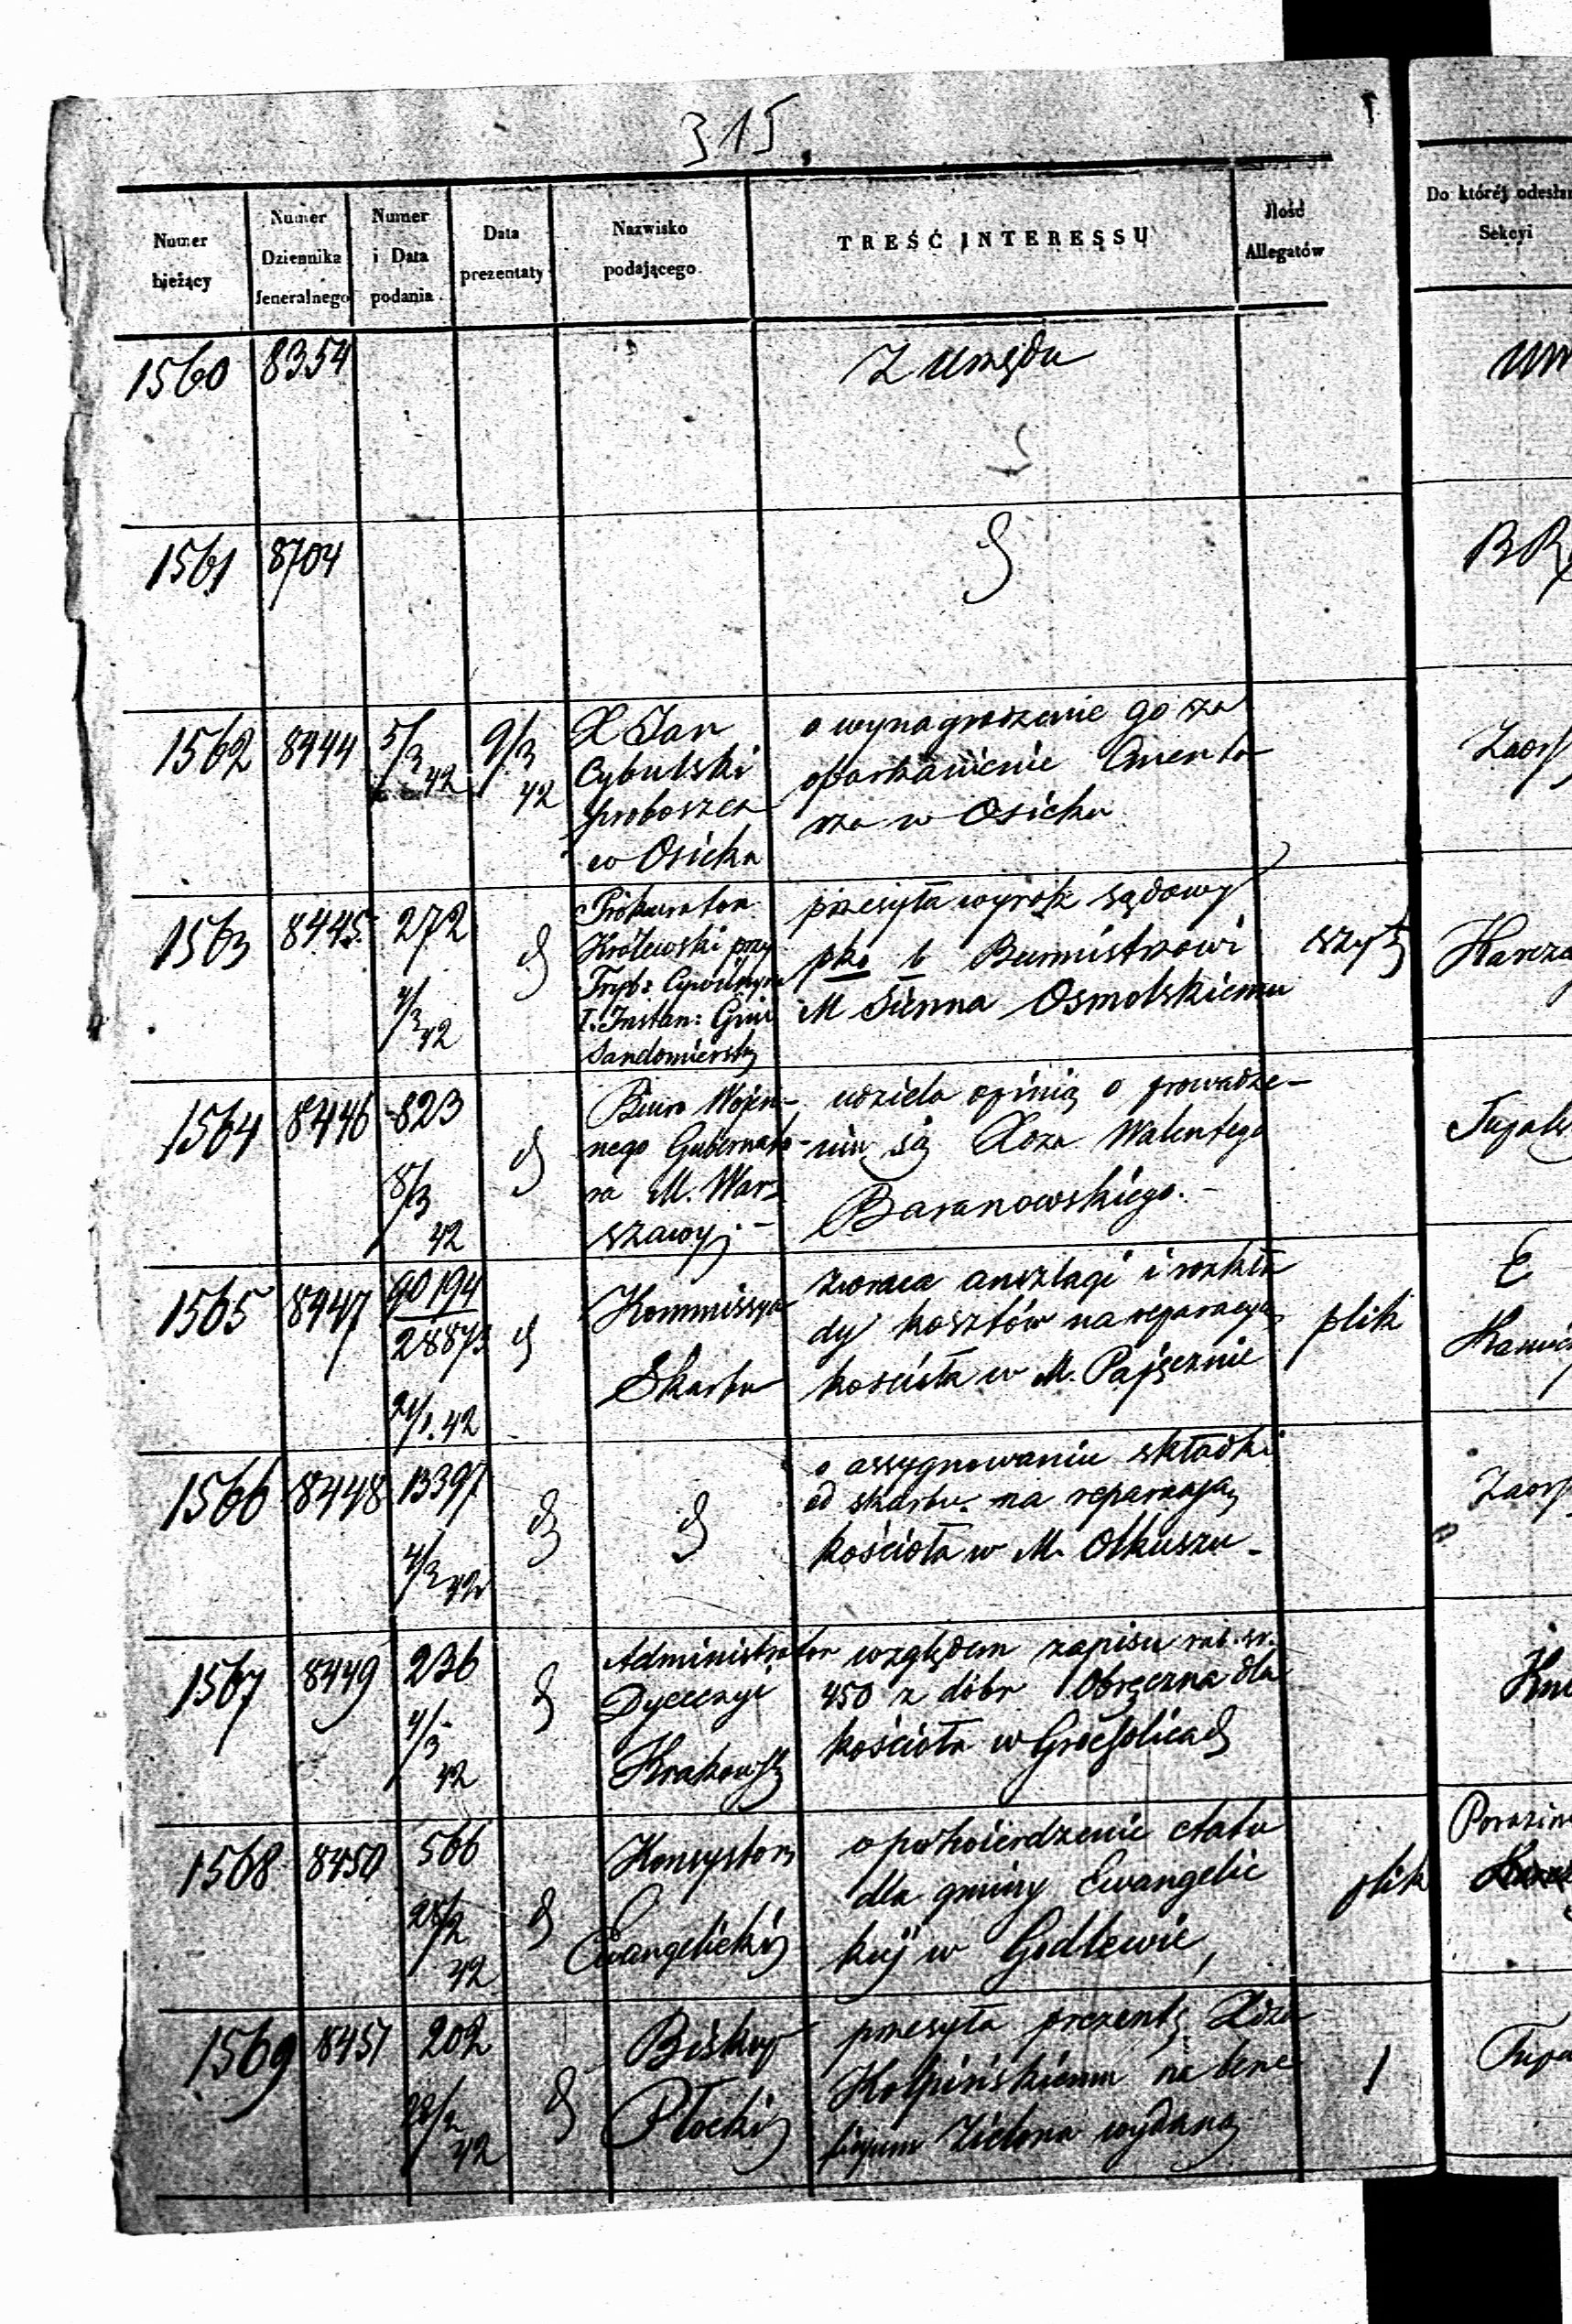 315.
Numer bieżący
Numer Dziennika Jeneralnego
Numer i Data podania
Data prezentaty
Nazwisko podającego
TREŚĆ INTERESSU
Jlość Allegatów
Do któréj odesłan
Sekcyi
1560 8354 Z Urzędu
1561 8704
1562 8444 5/3 42 9/3 42
X Jan
Cybulski
proboszcz
w Osieku
o wynagrodzenie go za
oparkanienie Cmenta
rza w Osieku
1563 8445 272
4/3 42
Prokurator
Królewski przy
Tryb: Cywilnym
I. Instan: Gub
Sandomiersky
przesyła wyrok sądowy
pko b Burmistrzowi
M Sienna Osmolskiemu
1564 8446 823
8/3 42
Biuro Wojen-
nego Gubernato-
ra M. War-
szawy.-
udziela opinią o prowadze-
niu się Xdza Walentego
Baranowskiego.-
1565 8447 90194
28873
21/1. 42
Kommissya
Skarbu
zwraca anszlagi i rozkła
dy kosztów na reparacyą
kościoła w M. Pajęcznie
plik
E
1566 8448 13397
4/3 42
o assygnowaniu składki
od skarbu na reparacyą
kościoła w M. Olkuszu-
1567 8449 236
4/3 42
Administrator
Dyecezyi
Krakowsk
względem zapisu rub. sr.
450 z dóbr Obręczna dla
kościoła w
1568 8450 566
28/2 42
Konsystorz
Ewangelicki
o potwierdzenie etatu
dla gminy Ewangelic
kiej w Godlewie,
plik
1569 8451 202
28/2 42
Biskup
Płocki
przesyła prezentę Xdzu
Kolpińskiemu na bene
ficyum Zielona wydaną
1